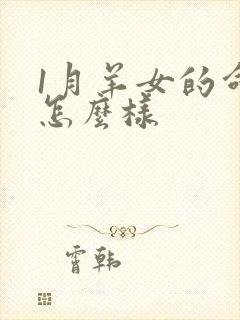 1月羊女的命
怎麼樣
霄韩